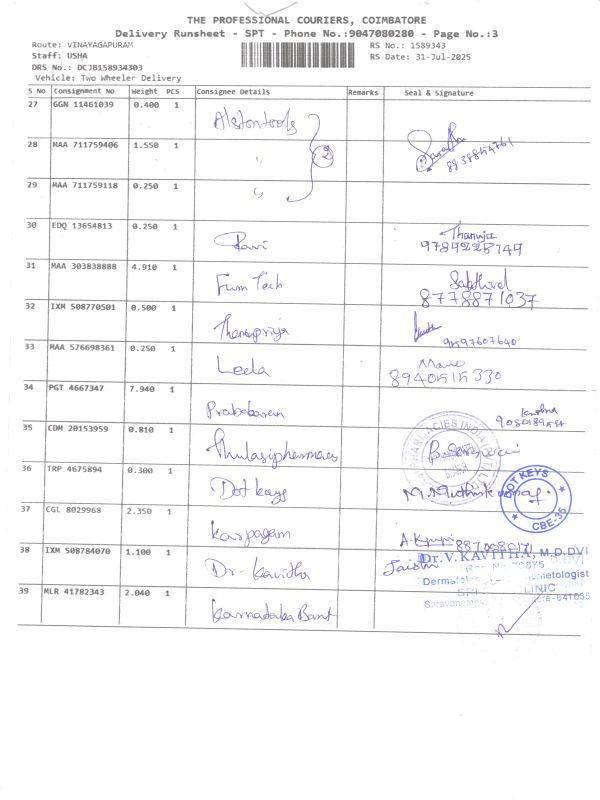 THE PROFESSIONAL COURIERS, COIMBATORE
Delivery Runsheet - SPT - Phone No.:9047080280 - Page No.:3
Route: VINAYAGAPURAM RS No.: 1589343
Staff: USHA RS Date: 31-Jul-2025
DRS No.: DCJB158934303
Vehicle: Two Wheeler Delivery
S No Consignment No Weight PCS Consignee Details Remarks Seal & Signature
27 GGN 11461039 0.400 1 Alstontools
28 MAA 711759406 1.550 1 " 2
29 MAA 711759118 0.250 1 "
30 EDQ 13654813 0.250 1 Ravi Thanuja
9789228749
31 MAA 303838888 4.910 1 Fum Tech Sakthivel
8778871037
32 IXM 508770501 0.500 1 Thanupriya
9597607640
33 MAA 576698361 0.250 1 Leela Mane
8940515330
34 PGT 4667347 7.940 1 Prabakaran Krishna
35 CDM 20153959 0.810 1 Thulasipharmacy
PHARMACIES INDIA
36 TRP 4675894 0.300 1 Dot keys
DOT KEYS
CBE-35
37 CGL 8029968 2.350 1 Karpagam
38 IXM 508784070 1.100 1 Dr. Kavitha Jaishri
Dr. V. KAVITHA, M.D.DVL
39 MLR 41782343 2.040 1 Karnadaka Bank